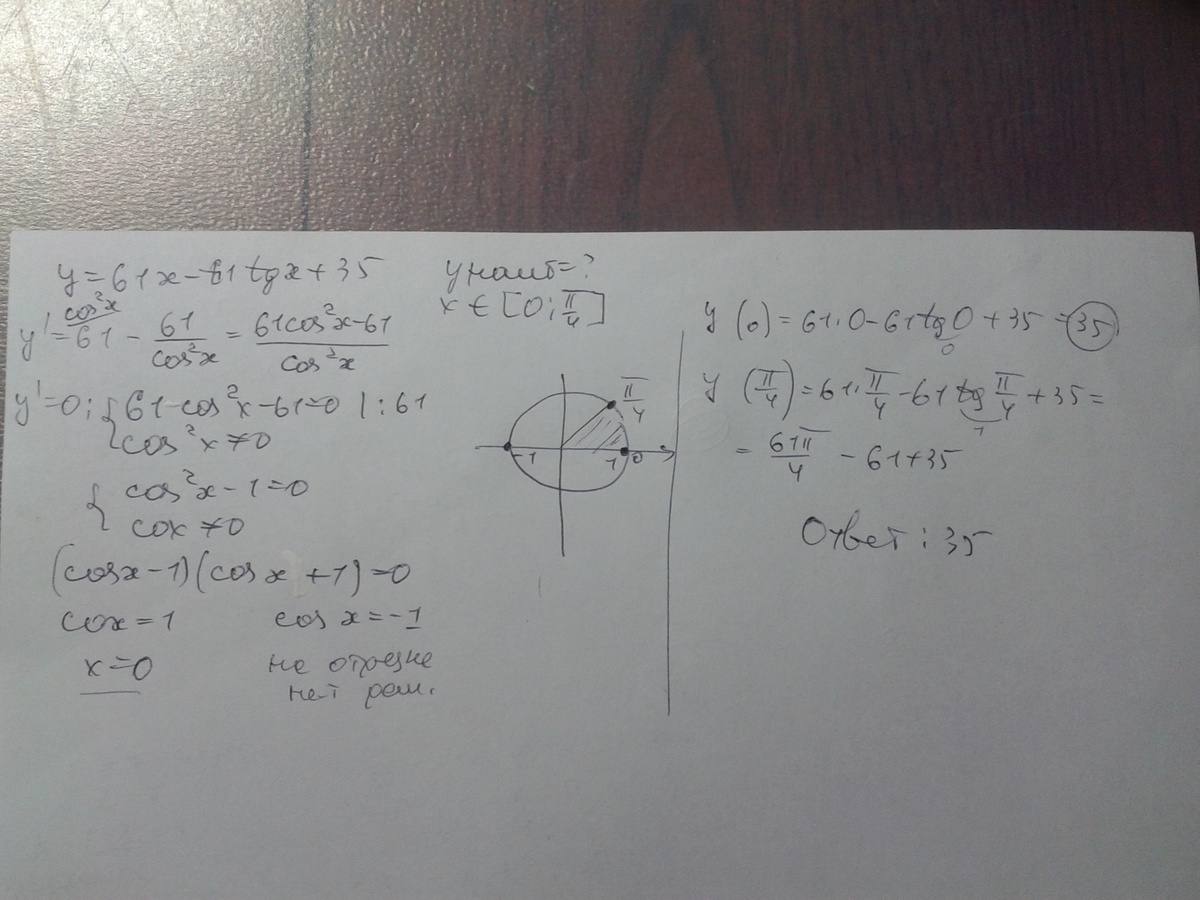 y=61x-61tgx+35
y'=61^{cos²x}-61/cos²x=(61cos²x-61)/cos²x
y'=0; { 61·cos²x-61=0 |:61
cos²x≠0
{ cos²x-1=0
cox≠0
(cosx-1)(cosx+1)=0
cox=1 cosx=-1
x=0 на отрезке
нет реш.
y наиб=?
x∈[0;π/4]
π/4
-1 1 0
y(0)=61·0-61tg0+35=35
0
y(π/4)=61·π/4-61tgπ/4+35=
1
=61π/4-61+35
Ответ: 35